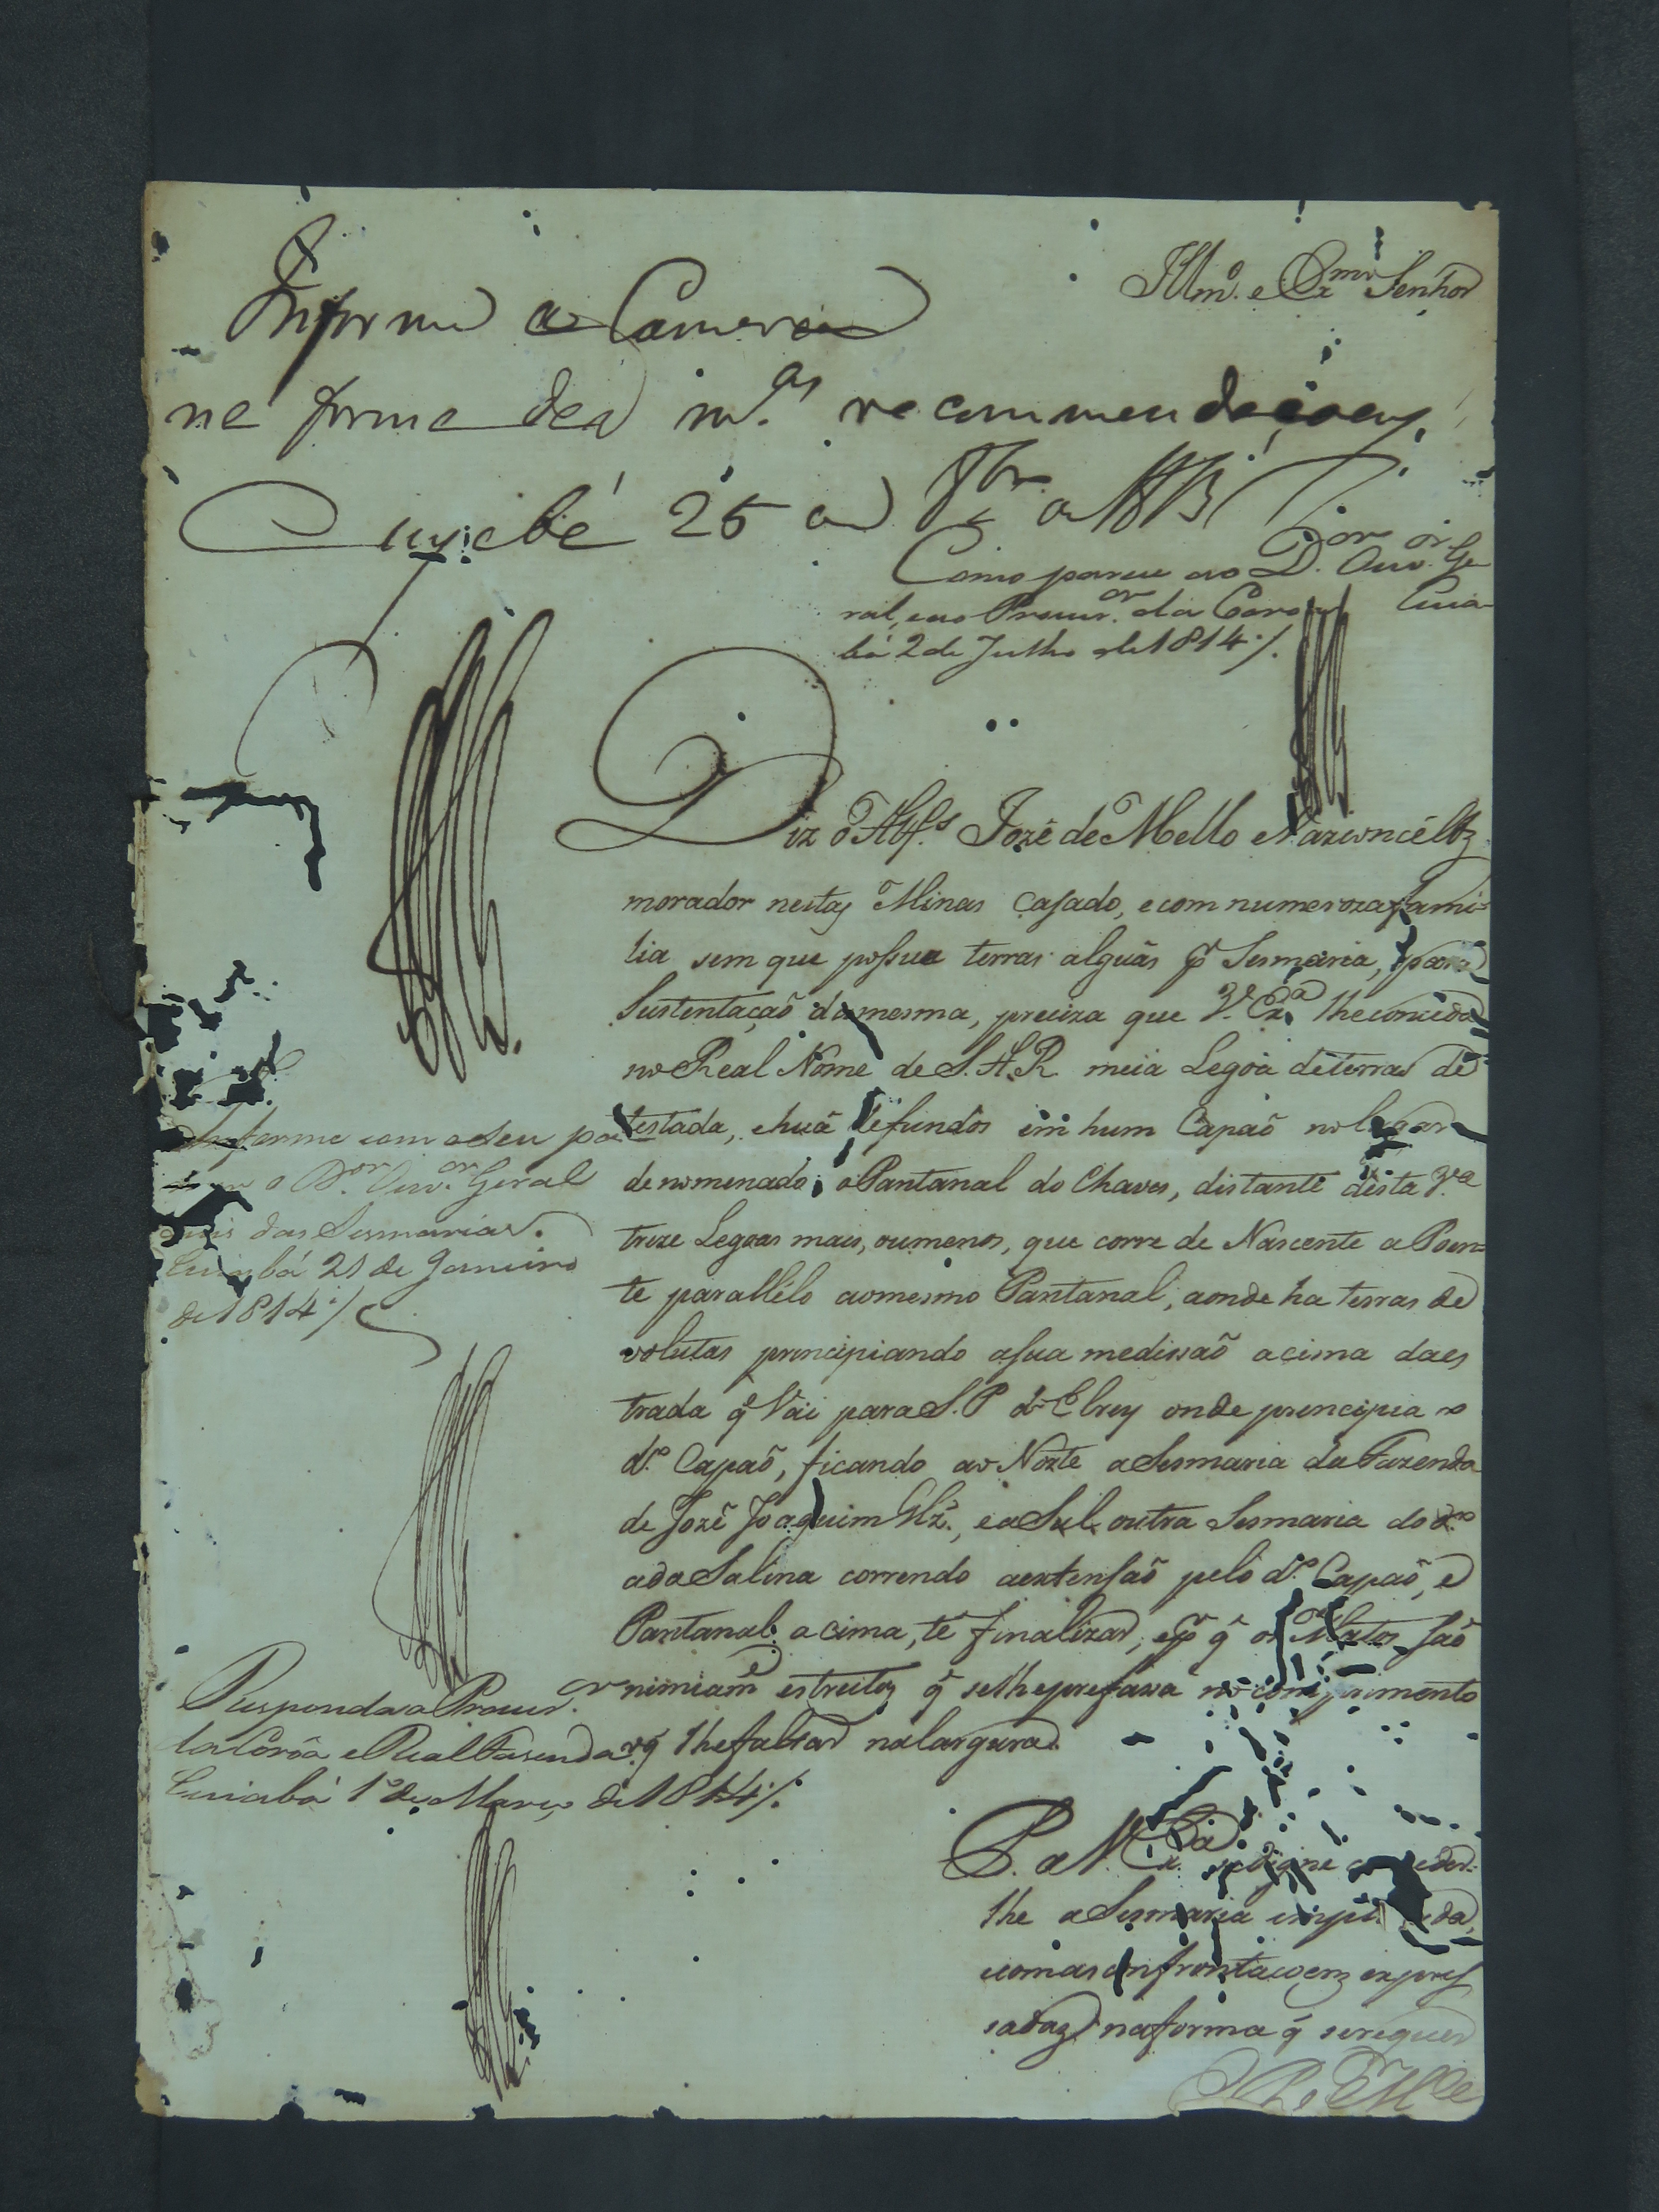 Illmo. e Exmo Senhor
Informe a Camera
na forma das mas. recommendaçoens,
Cuyabá 25 de 8bro. de 1813
Como parece ao Dor. Ouvor. Ge-
ral, e ao Procuror. da Coroa Cuia-
bá 2 de Julho de 1814 /.
Diz o Alfs. Jozé de Mello e Vazconcéllz
morador nestas Minas Casado, e com numeroza fami-
lia sem que possua terras alguãs pr Sesmaria, para
Sustentaçaõ da mesma, preciza que V. Exa. lhe conceda
no Real Nome de S. A. R. meia Legoa de terras de
testada, e huã de fundos em hum Capaõ no lugar
denomenado o Pantanal do Chaves, distante desta Va.
treze Legoas mais, ou menos, que corre de Nascente a Poen-
te parallélo ao mesmo Pantanal, aonde ha terras de
volutas principiando a sua medissaõ acima da es
trada q̃ Vai para S. P. d'Elrey onde principia o
do. Capaõ, ficando ao Norte a Sesmaria da Fazenda
de Jozé Joaquim Glz., e a Sul outra Sesmaria do do.
a da Salina correndo a extensaõ pelo do. Capaõ, e
Pantanal acima, té finalizar, e pr q̃ os Matos saõ
nimiame. estreitos q̃ se lhe prefassa no comprimento
o q̃ lhe faltar na largura.
Informe com o seu pa
recer o Dor. Ouvor. Geral
Juis das Sesmarias.
Cuiabá 21 de Janeiro
de 1814 /.
Responda o Procuror.
da Corôa e Real Fasenda
Cuiabá 1º de Março de 1814 /.
P. a V. Exa. se digne conceder-
lhe a Sesmaria impetrada,
com as confrontaçoens expres
sadas na forma q̃ se requer
E. R. Mce